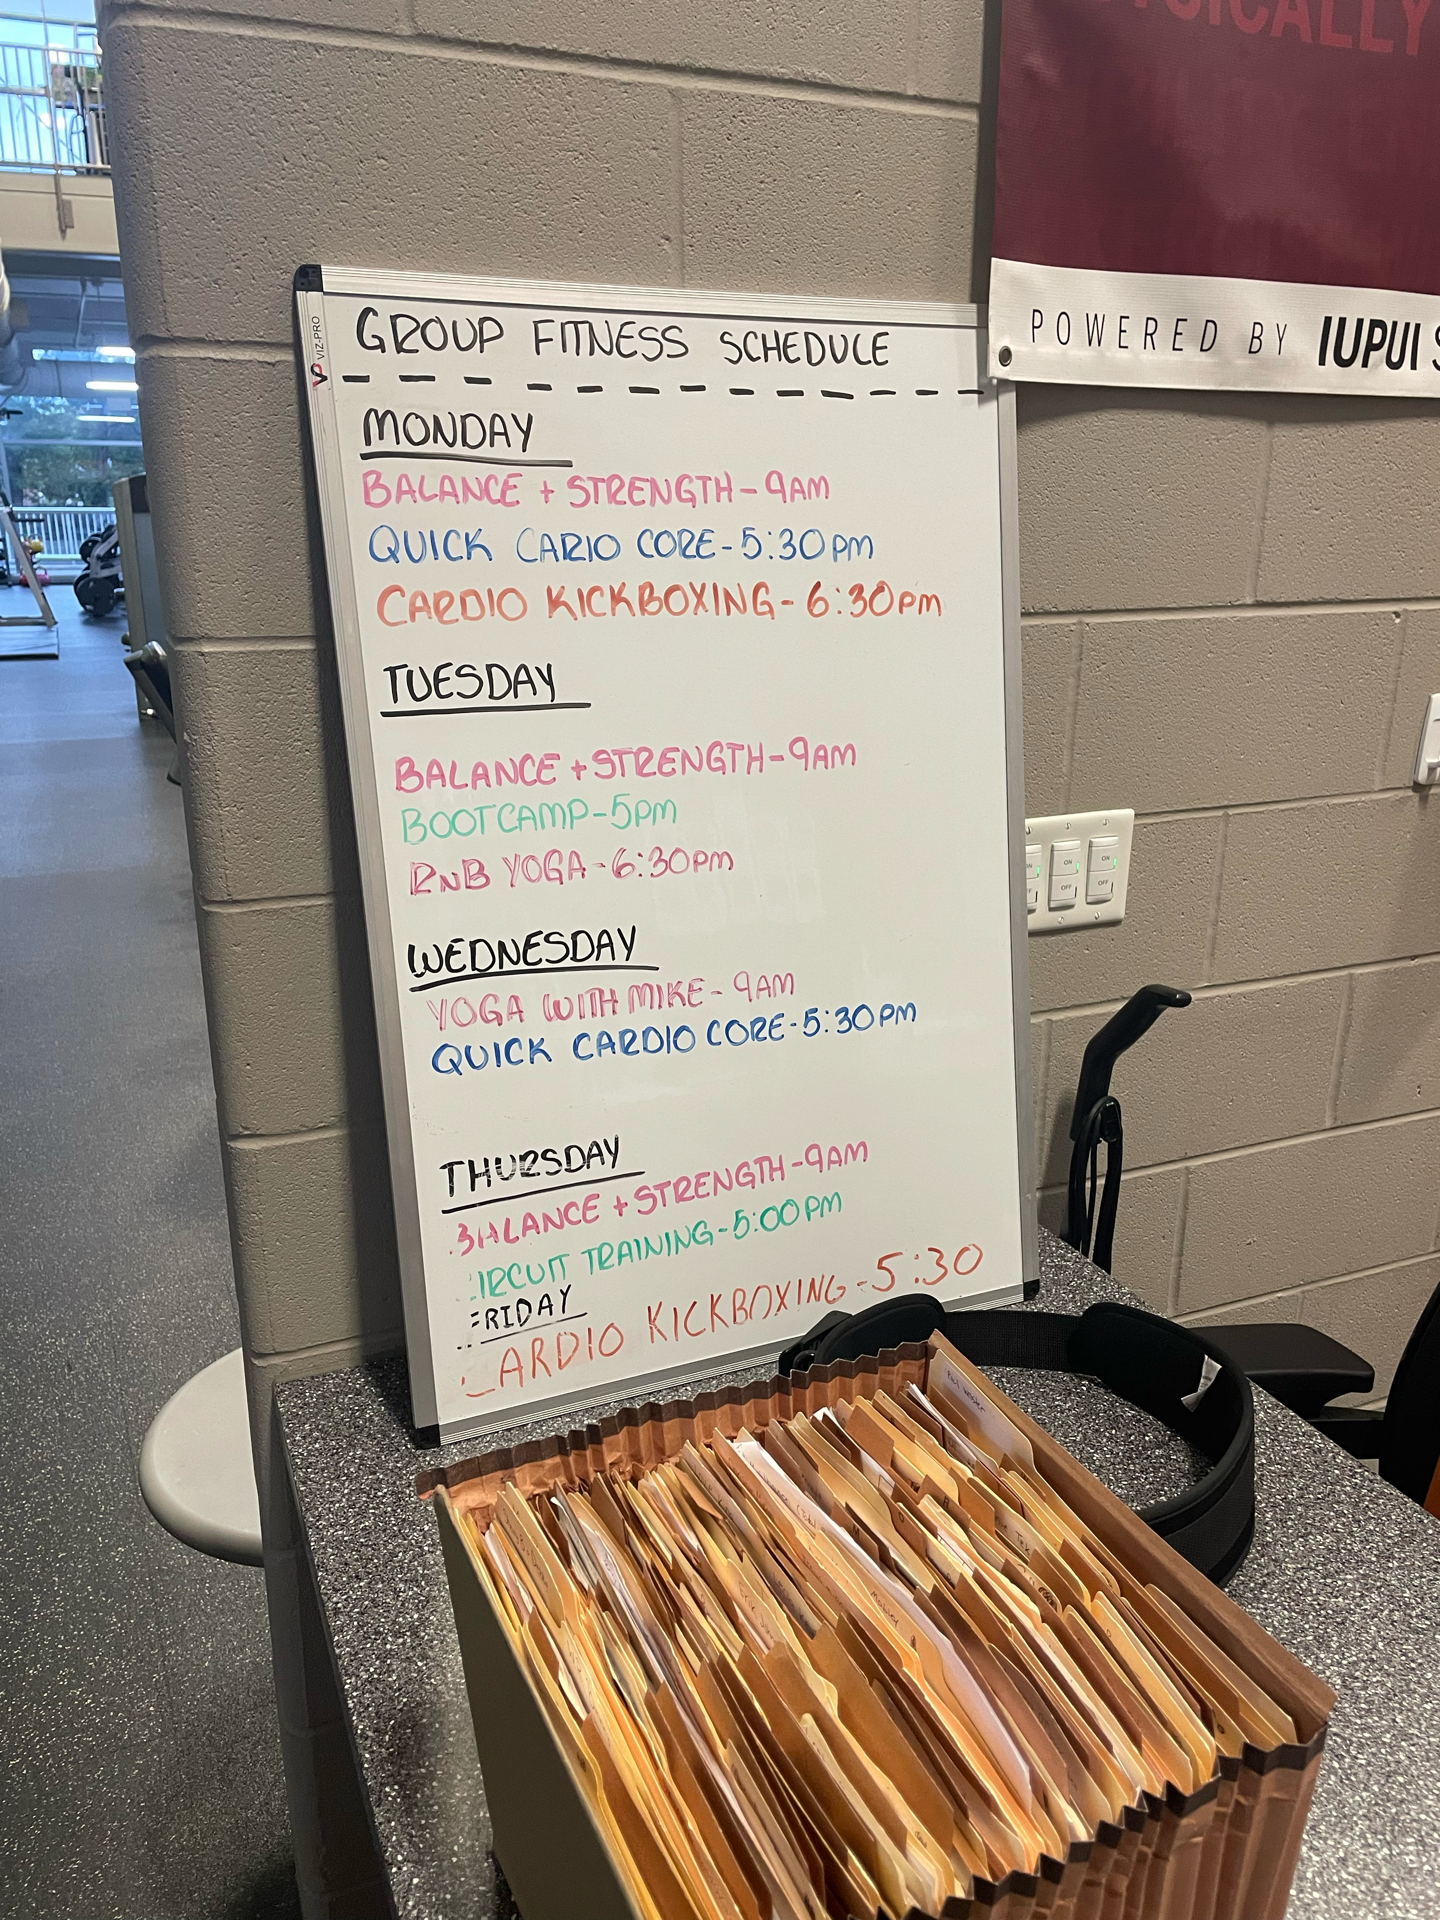 PHYSICALLY
POWERED BY IUPUI S
VIZ-PRO
GROUP FITNESS SCHEDULE
MONDAY
BALANCE + STRENGTH - 9AM
QUICK CARIO CORE - 5:30PM
CARDIO KICKBOXING - 6:30PM
TUESDAY
BALANCE + STRENGTH - 9AM
BOOTCAMP - 5PM
RNB YOGA - 6:30PM
WEDNESDAY
YOGA WITH MIKE - 9AM
QUICK CARDIO CORE - 5:30PM
THURSDAY
BALANCE + STRENGTH - 9AM
IRCUIT TRAINING - 5:00PM
FRIDAY
CARDIO KICKBOXING - 5:30
ON ON
OFF OFF